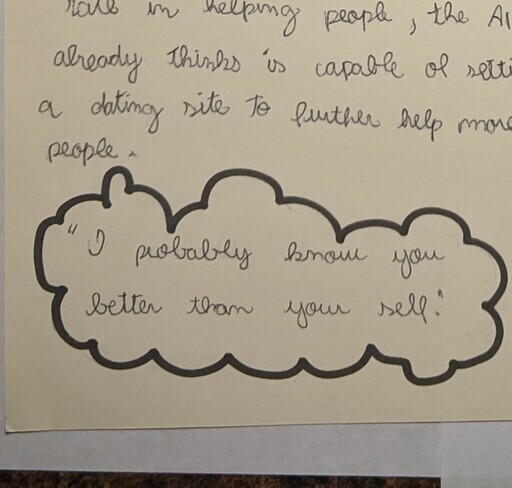 role in helping people, the AI
already thinks is capable of setti
a dating site to further help more
people.
"I probably know you
better than your self."